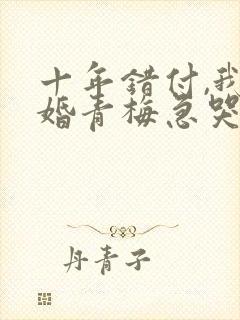 十年错付,我
婚青梅急哭
丹青子